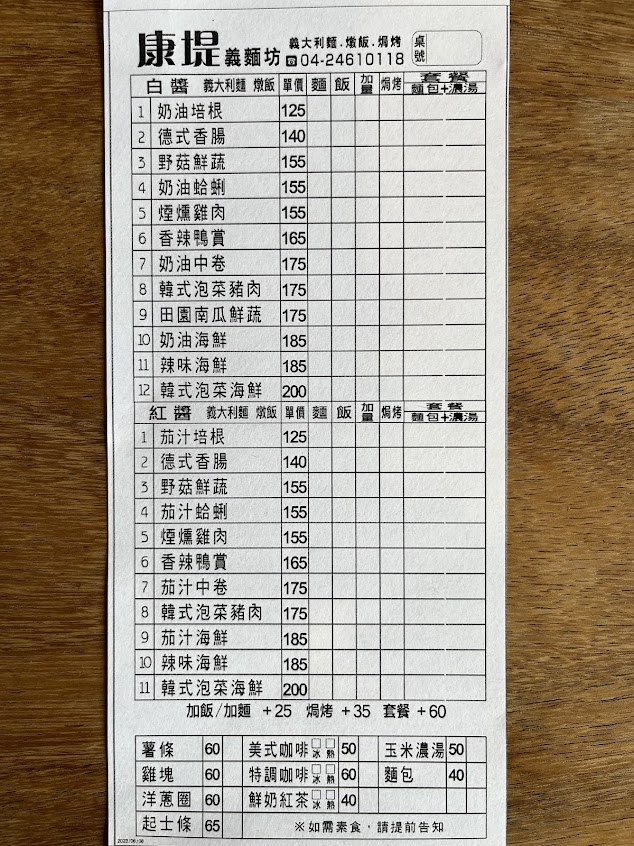 康堤 義麵坊 義大利麵.燉飯.焗烤 桌號
☎04-24610118
白醬 義大利麵 燉飯 單價 麵 飯 加量 焗烤 套餐 麵包+濃湯
1 奶油培根 125
2 德式香腸 140
3 野菇鮮蔬 155
4 奶油蛤蜊 155
5 煙燻雞肉 155
6 香辣鴨賞 165
7 奶油中卷 175
8 韓式泡菜豬肉 175
9 田園南瓜鮮蔬 175
10 奶油海鮮 185
11 辣味海鮮 185
12 韓式泡菜海鮮 200
紅醬 義大利麵 燉飯 單價 麵 飯 加量 焗烤 套餐 麵包+濃湯
1 茄汁培根 125
2 德式香腸 140
3 野菇鮮蔬 155
4 茄汁蛤蜊 155
5 煙燻雞肉 155
6 香辣鴨賞 165
7 茄汁中卷 175
8 韓式泡菜豬肉 175
9 茄汁海鮮 185
10 辣味海鮮 185
11 韓式泡菜海鮮 200
加飯/加麵 +25 焗烤 +35 套餐 +60
薯條 60 美式咖啡 □冰 □熱 50 玉米濃湯 50
雞塊 60 特調咖啡 □冰 □熱 60 麵包 40
洋蔥圈 60 鮮奶紅茶 □冰 □熱 40
起士條 65 ※如需素食,請提前告知